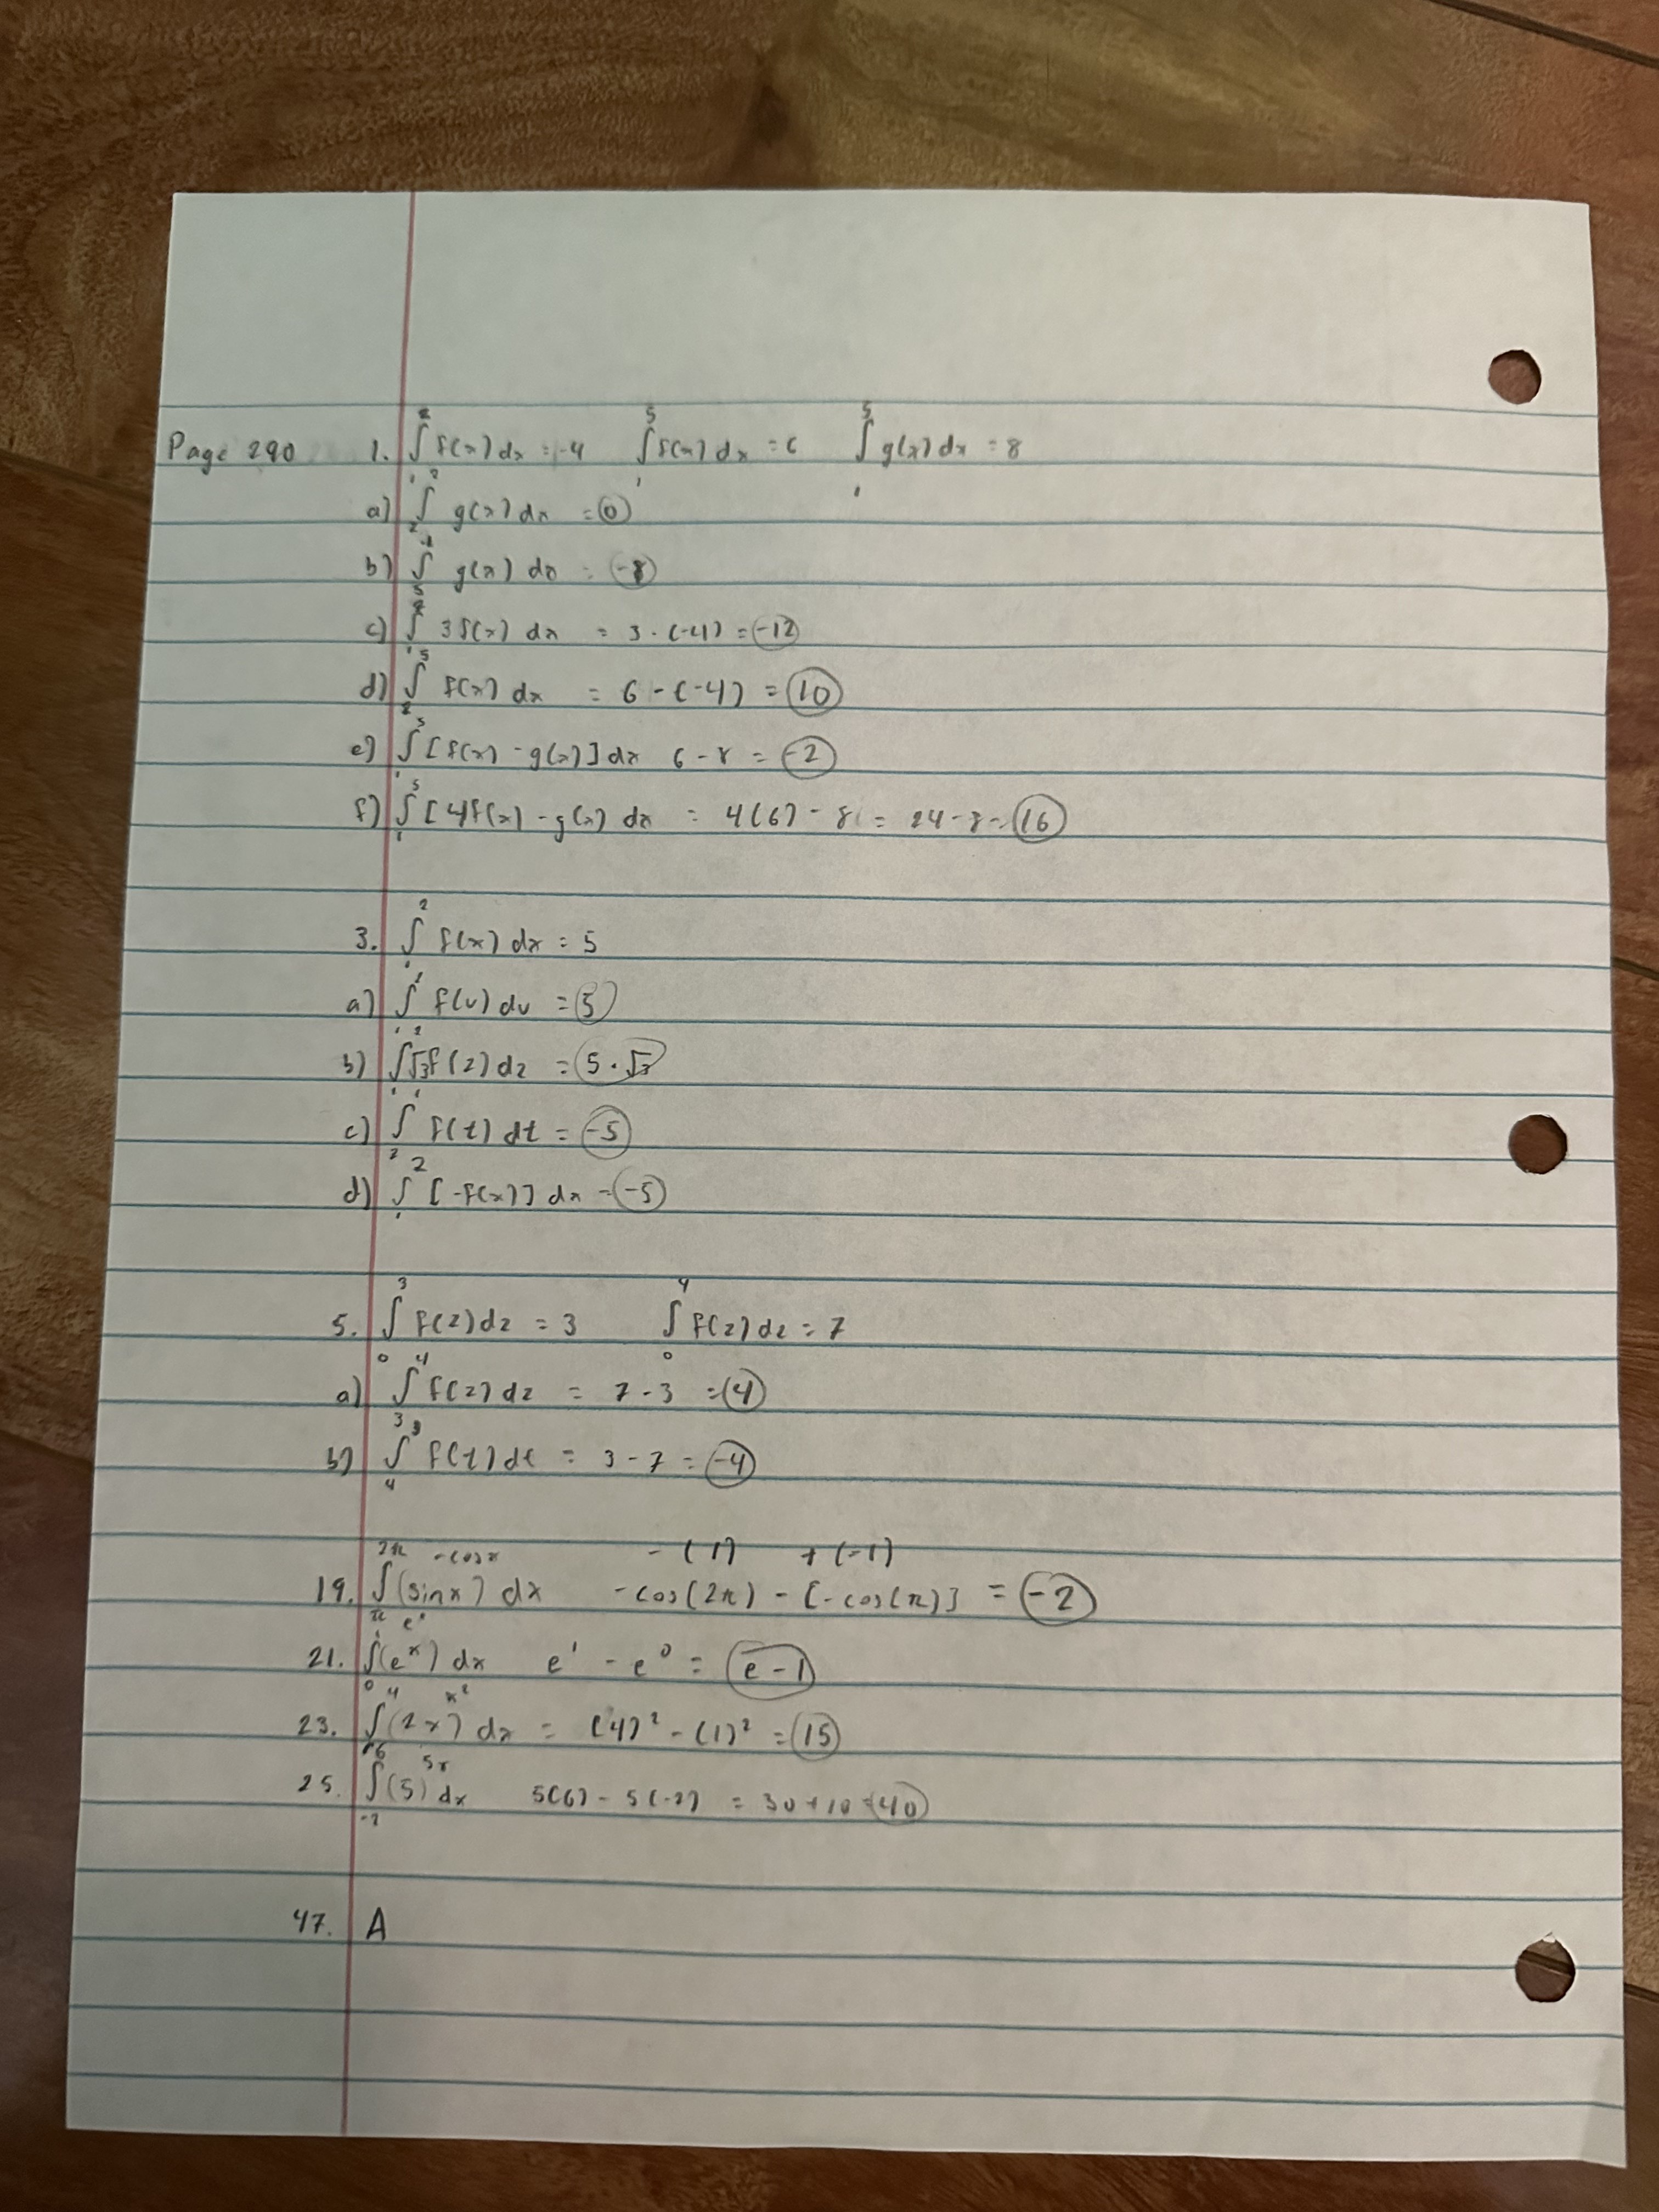 Page 290 1. ∫₁² f(x) dx = -4 ∫₁⁵ f(x) dx = 6 ∫₁⁵ g(x) dx = 8
a) ∫₂² g(x) dx = 0
b) ∫₅¹ g(x) dx = -8
c) ∫₁² 3f(x) dx = 3 · (-4) = -12
d) ∫₂⁵ f(x) dx = 6 - (-4) = 10
e) ∫₁⁵ [f(x) - g(x)] dx 6 - 8 = -2
f) ∫₁⁵ [4f(x) - g(x) dx = 4(6) - 8 = 24 - 8 = 16
3. ∫₁² f(x) dx = 5
a) ∫₁² f(u) du = 5
b) ∫₁² √3 f(z) dz = 5 · √3
c) ∫₂¹ f(t) dt = -5
d) ∫₁² [-f(x)] dx = -5
5. ∫₀³ f(z) dz = 3 ∫₀⁴ f(z) dz = 7
a) ∫₃⁴ f(z) dz = 7 - 3 = 4
b) ∫₄³ f(t) dt = 3 - 7 = -4
-cos x -(1) +(-1)
19. ∫_π^2π (sin x) dx -cos(2π) - [-cos(π)] = -2
eˣ
21. ∫₀¹ (eˣ) dx e¹ - e⁰ = e - 1
x²
23. ∫₁⁴ (2x) dx = (4)² - (1)² = 15
5x
25. ∫₋₂⁶ (5) dx 5(6) - 5(-2) = 30 + 10 = 40
47. A